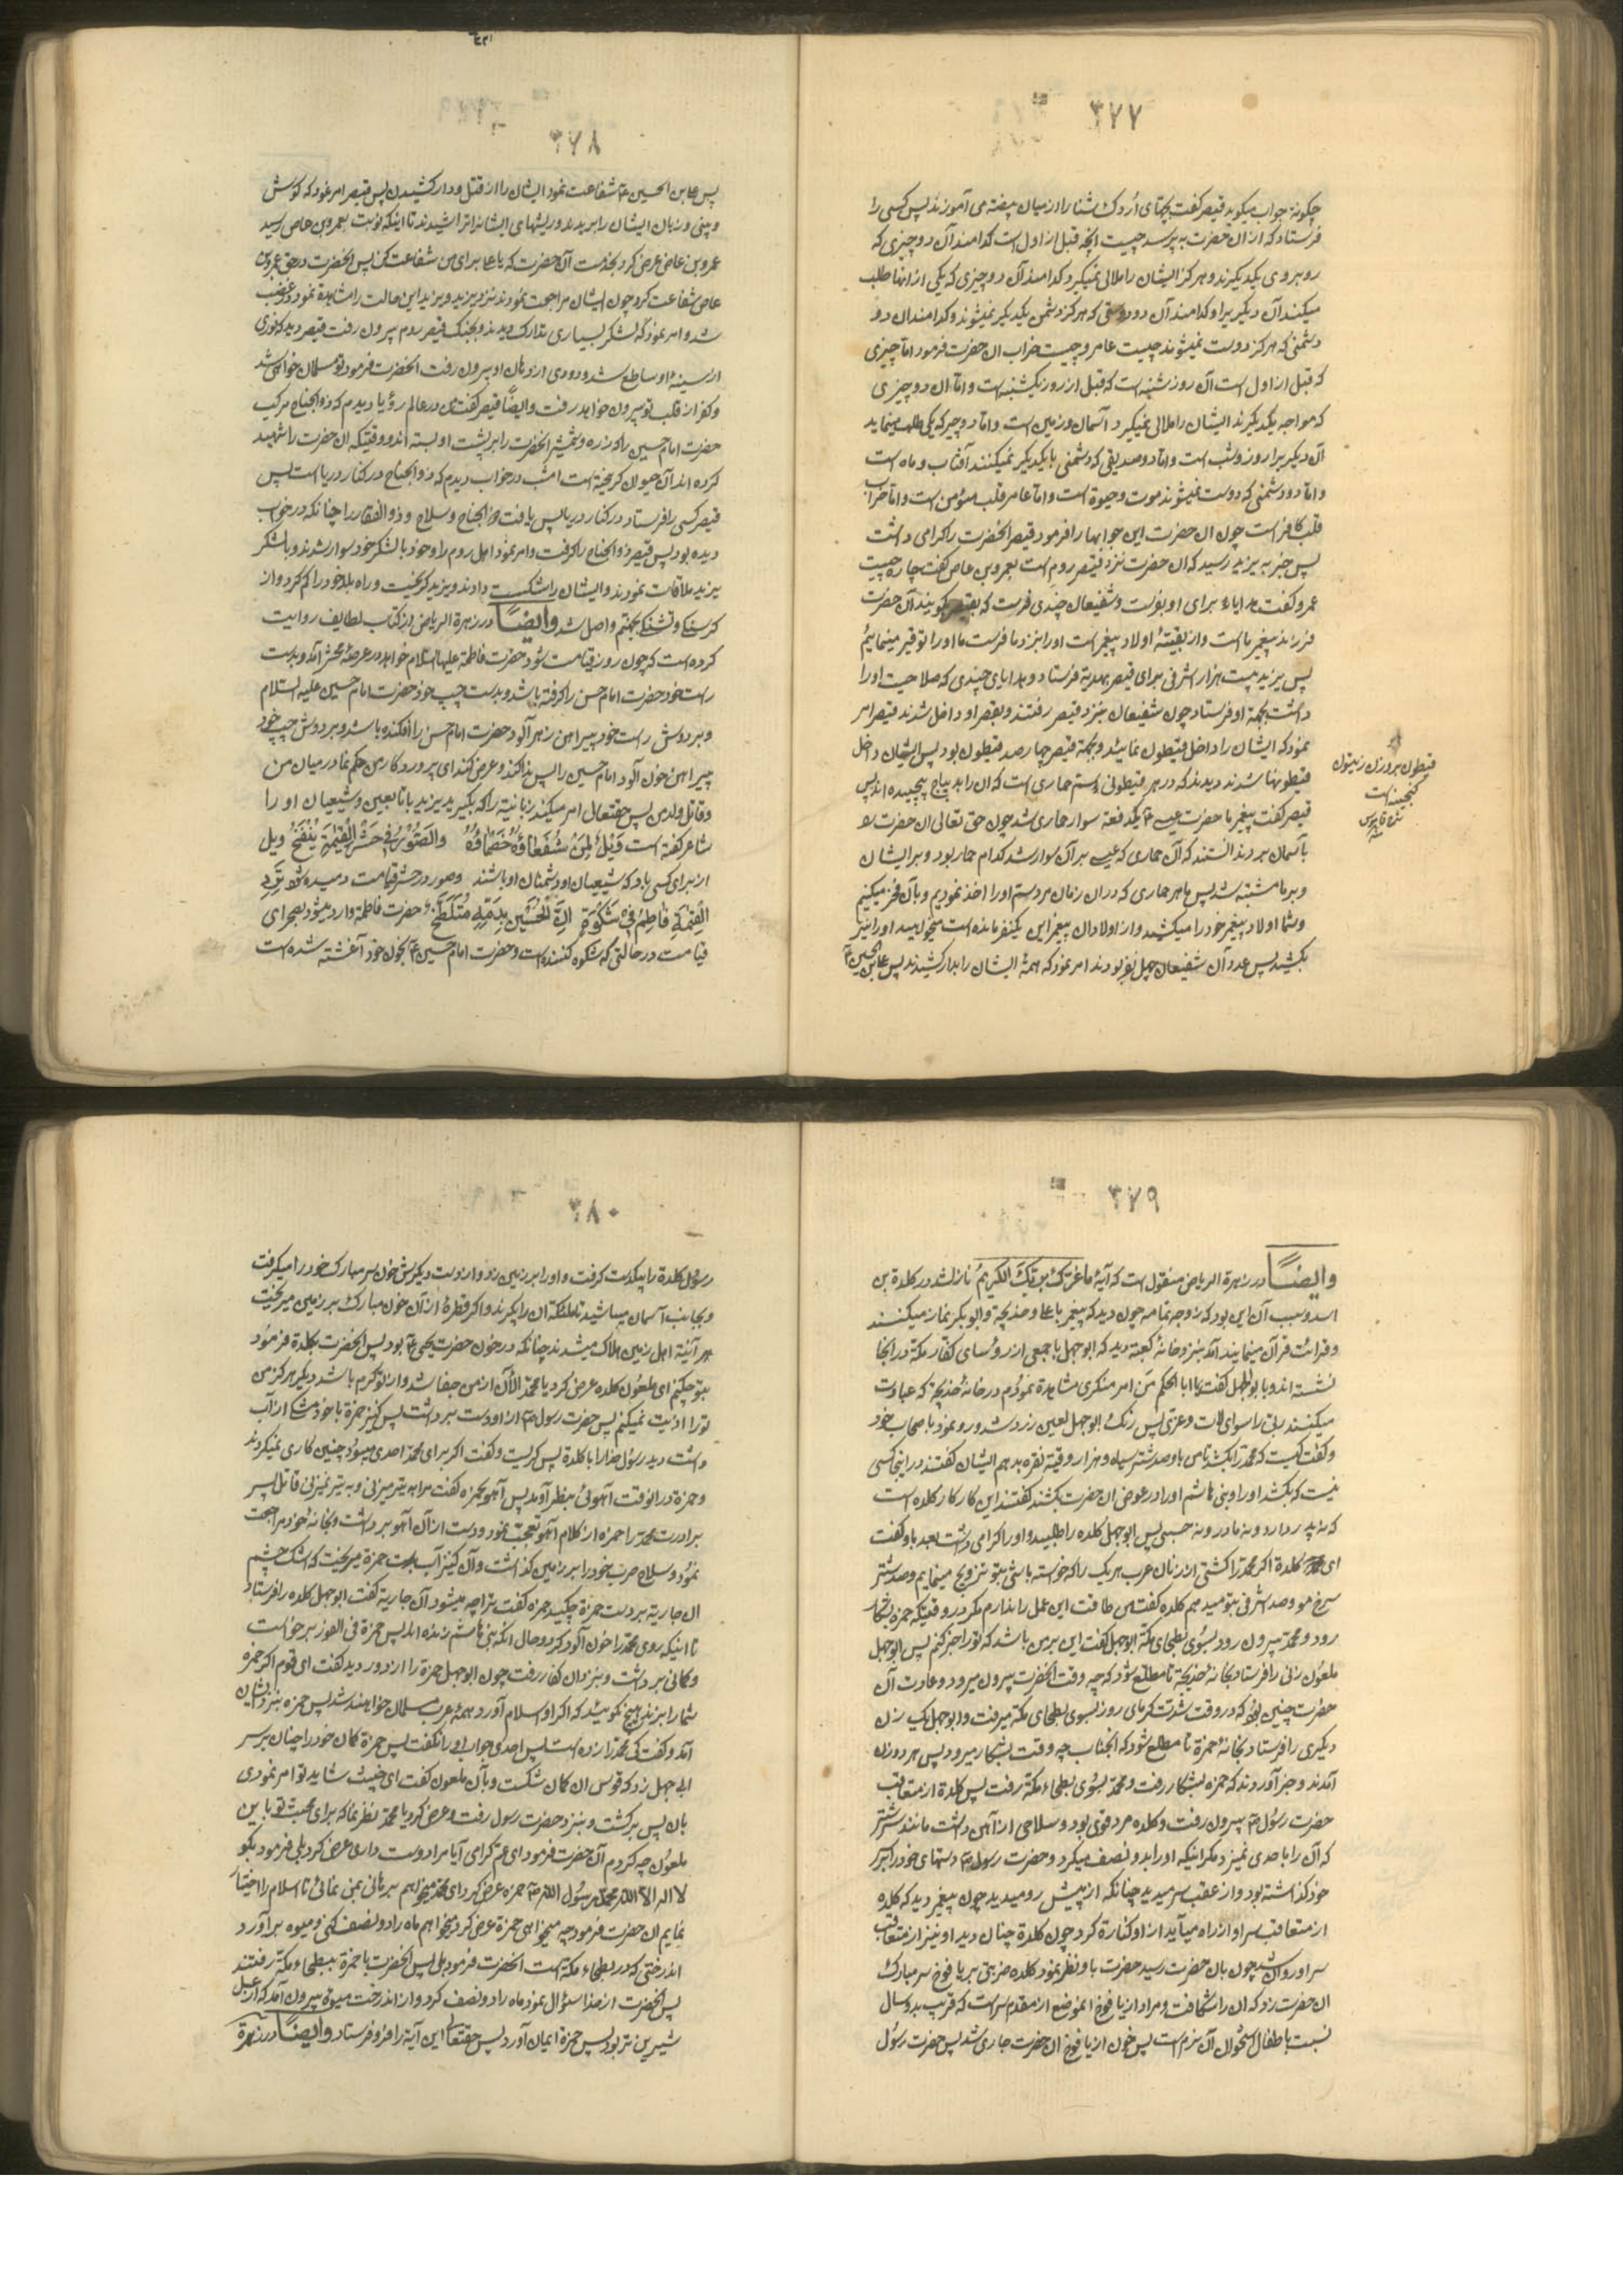 ۳۷۷
چگونه جواب میگوید قیصر گفت بچهای اردک شنا را از میان بیضه می آموزند پس کسی را
فرستاد که از ان حضرت به پرسد چیست انچه قبل از اول است کدامند آن دو چیزی که
روبروی یکدیگرند و هرگز ایشان را ملالی نمیگیرد کدامند آن دو چیزی که یکی از انها طلب
میکند آن دیگریرا و کدامند آن دو دوستی که هرگز دشمن یکدیگر نمیشوند و کدامند ان دو
دشمنی که هرگز دوست نمیشوند چیست عامر و چیست خراب ان حضرت فرمود اما چیزی
که قبل از اول است آن روز شنبه است که قبل از روز یکشنبه است و اما ان دو چیزی
که مواجه یکدیگرند ایشان را ملالی نمیگیرد آسمان و زمین است و اما دو چیز که یکی طلب مینماید
آن دیگریرا روز و شب است و اما دو صدیقی که دشمنی با یکدیگر نمیکنند آفتاب و ماه است
و اما دو دشمنی که دوست نمیشوند موت و حیوة است و اما عامر قلب مؤمن است و اما خراب
قلب کافر است چون ان حضرت این جوابها را فرمود قیصر انحضرت را گرامی داشت
پس خبر به یزید رسید که ان حضرت نزد قیصر روم است بعمرو بن عاص گفت چاره چیست
عمرو گفت هدایاء برای او بفرست و شفیعان چندی فرست که بقیصر گویند آن حضرت
فرزند پیغمبر ما است و از بقیّهٔ اولاد پیغمبر است او را بنزد ما فرست ما او را توقیر مینمائیم
پس یزید بیست هزار اشرفی برای قیصر بهدیه فرستاد و هدایای چندی که صلاحیت او را
داشت بجهة او فرستاد چون شفیعان بنزد قیصر رفتند و بقصر او داخل شدند قیصر امر
نمود که ایشان را داخل قیطون نمائید و بجهة قیصر چهار صد قیطون بود پس ایشان داخل
قیطونها شدند دیدند که در هر قیطونی سم حماری است که ان را بدیباج پیچیده اند پس
قیصر گفت پیغمبر ما حضرت عیسی ع یکدفعه سوار حماری شد چون حق تعالی ان حضرت را
بآسمان برد ندانستند که آن حماری که عیسی بر آن سوار شد کدام حمار بود و بر ایشان
و بر ما مشتبه شد پس ما هر حماری که در ان زمان مرد سم او را اخذ نمودیم و بآن فخر میکنیم
و شما اولاد پیغمبر خود را میکشید و از اولاد ان پیغمبر این یکنفر مانده است میخواهید او را نیز
بکشید پس عدد آن شفیعان چهل نفر بودند امر نمود که همهٔ ایشان را بدار کشیدند پس علی بن الحسین ع
قیطون بر وزن زیتون
گنجینه است
۳۷۸
پس علی بن الحسین ع شفاعت نمود ایشان را از قتل و دار کشیدن پس قیصر امر نمود که گوش
و بینی و زبان ایشان را بریدند و ریشهای ایشانرا تراشیدند تا اینکه نوبت بعمرو بن عاص رسید
عمرو بن عاص عرض کرد بخدمت آن حضرت که یا علی برای من شفاعت کن پس انحضرت در حق عمرو بن
عاص شفاعت کرد چون ایشان مراجعت نمودند نزد یزید و یزید این حالت را مشاهده نمود در غضب
شد و امر نمود که لشگر بسیاری تدارک دیدند و بجنگ قیصر روم بیرون رفت قیصر دید که نوری
از سینهٔ او ساطع شد و دودی از دهان او بیرون رفت انحضرت فرمود تو مسلمان خواهی شد
و کفر از قلب تو بیرون خواهد رفت و ایضًا قیصر گفت من در عالم رؤیا دیدم که ذو الجناح مرکب
حضرت امام حسین را که زره و شمشیر انحضرت را بر پشت او بسته اند و وقتیکه ان حضرت را شهید
کرده اند آن حیوان گریخته است امشب در خواب دیدم که ذو الجناح در کنار دریا است پس
قیصر کسی را فرستاد در کنار دریا پس یافت ذو الجناح و سلاح و ذو الفقار را چنانکه در خواب
دیده بود پس قیصر ذو الجناح را گرفت و امر نمود اهل روم را و خود با لشگر خود سوار شدند و با لشگر
یزید ملاقات نمودند و ایشان را شکست دادند و یزید گریخت و راه بلد خود را گم کرد و از
گرسنگی و تشنگی بجهنم واصل شد وایضًا در زهرة الریاض از کتاب لطایف روایت
کرده است که چون روز قیامت شود حضرت فاطمه علیها السلام خواهد در عرصهٔ محشر آمد و بدست
راست خود حضرت امام حسن را گرفته باشد و بدست چپ خود حضرت امام حسین علیه السلام
و بر دوش راست خود پیراهن زهر آلود حضرت امام حسن را افکنده باشد و بر دوش چپ خود
پیراهن خون آلود امام حسین را پس ندا کند و عرض کند ای پروردگار من حکم نما در میان من
و قاتل ولد من پس حقتعالی امر میکند زبانیة را که بگیرید یزید یا تابعین و شیعیان او را
شاعر گفته است وَیْلٌ لِمَنْ شُفَعاؤُهُ خُصَماؤُهُ وَالصُّوْرُ فِی حَشْرِ الْقِیٰمَةِ یُنْفَخُ ویل
از برای کسی باد که شفیعان او دشمنان او باشند و صور در حشر قیامت دمیده شود تَرِدِ
الْقِیٰمَةَ فاطِمُ فِی شَکْوَةٍ اِنَّ الْحُسَیْنَ بِدَمِهِ مُتَلَطَّخُ حضرت فاطمه وارد میشود بصحرای
قیامت در حالتی که شکوه کننده است و حضرت امام حسین ع بخون خود آغشته شده است
۳۷۹
وایضًا در زهرة الریاض منقول است که آیهٔ ما غَرَّکَ بِرَبِّکَ الْکَرِیمُ نازل شد در کلدة بن
اسد و سبب آن این بود که زوجه تمامه چون دید که پیغمبر با علی و خدیجه و ابو بکر نماز میکنند
و قرائت قرآن مینمایند آمد بنزد خانهٔ کعبه دید که ابو جهل با جمعی از رؤسای کفار مکه در انجا
نشسته اند و با بو جهل گفت یا ابا الحکم من امر منکری مشاهده نمودم در خانهٔ خدیجه که عبادت
میکنند ربی را سوای لات و عزی پس رنگ ابو جهل لعین زرد شد و رو نمود باصحاب خود
و گفت کیست که محمد را بکشد تا من باو صد شتر سیاه و هزار وقیه نقره بدهم ایشان گفتند در اینجا کسی
نیست که بکشد او را و بنی هاشم او را در عوض ان حضرت بکشند گفتند این کار کار کلده است
که نه پدر دارد و نه مادر و نه حسبی پس ابو جهل کلده را طلبید و او را گرامی داشت بعد باو گفت
ای کلدة اگر محمد را کشتی از زنان عرب هر یک را که خواسته باشی بتو تزویج مینمایم و صد شتر
سرخ مو و صد اشرفی بتو میدهم کلده گفت من طاقت این عمل را ندارم مگر در وقتیکه حمزه بشکار
رود و محمد بیرون رود بسوی بطحای مکه ابو جهل گفت این بر من باشد که تو را خبر کنم پس ابو جهل
ملعون زنی را فرستاد بخانهٔ خدیجه تا مطلع شود که چه وقت انحضرت بیرون میرود و عادت آن
حضرت چنین بود که در وقت شدت گرمای روز بسوی بطحای مکه میرفت و ابو جهل یک زن
دیگری را فرستاد بخانهٔ حمزه تا مطلع شود که انجناب چه وقت بشکار میرود پس هر دو زن
آمدند و خبر آوردند که حمزه بشکار رفت و محمد بسوی بطحاء مکه رفت پس کلدة از متعاقب
حضرت رسول ص بیرون رفت و کلده مرد قوی بود و سلاحی از آهن داشت مانند سر شتر
که آن را باحدی نمیزد مگر اینکه او را بدو نصف میکرد و حضرت رسول ص دستهای خود را بر سر
خود گذاشته بود و از عقب سر میدید چنانکه از پیش رو میدید چون پیغمبر دید که کلده
از متعاقب سر او از راه میآید از او کناره کرد چون کلدة چنان دید او نیز از متعاقب
سر او روان شد چون بان حضرت رسید حضرت باو نظر نمود کلده ضربتی بر یا فوخ سر مبارک
ان حضرت زد که ان را شکافت و مراد از یا فوخ انموضع از مقدم سر است که قریب بدو سال
نسبت باطفال استخوان آن نرم است پس خون از یافوخ ان حضرت جاری شد پس حضرت رسول
۳۸۰
رسول کلدة را بیکدست گرفت و او را بر زمین زد و از دست دیگرش خون سر مبارک خود را میگرفت
و بجانب آسمان میپاشید تا ملائکه ان را بگیرند و اگر قطرهٔ از آن خون مبارک بر زمین میریخت
هر آئینه اهل زمین هلاک میشدند چنانکه در خون حضرت یحیی ع بود پس انحضرت بکلدة فرمود
بتو چکنم ای ملعون کلده عرض کرد یا محمد الآن از من جفا شد و از تو کرم باشد دیگر هرگز من
تو را اذیت نمیکنم پس حضرت رسول ص از او دست برداشت پس کنیز حمزة با خود مشگی از آب
داشت دید رسول خدا را با کلدة پس گریست و گفت اگر برای محمد احدی میبود چنین کاری نمیکردند
و حمزه در انوقت آهوئی بنظر آورد پس آهو بحمزه گفت مرا به تیر میزنی و به تیر نمیزنی قاتل پسر
برادرت محمد را حمزه از کلام آهو تعجب نمود و دست از آن آهو برداشت و بخانه خود مراجعت
نمود و سلاح حرب خود را بر زمین گذاشت و آن کنیز آب بدست حمزة میریخت که اشک چشم
ان جاریه بر دست حمزة چکید حمزه گفت ترا چه میشود آن جاریه گفت ابو جهل کلده را فرستاد
تا اینکه روی محمد را خون آلود کرد و حال انکه بنی هاشم زنده اند پس حمزة فی الفور برخواست
و کمانی برداشت و بنزد ان کفار رفت چون ابو جهل حمزة را از دور دید گفت ای قوم اگر حمزه
شما را بزند هیچ نگوئید که اگر او اسلام آورد همهٔ عرب مسلمان خواهند شد پس حمزه بنزد ایشان
آمد و گفت کی محمد را زده است پس احدی جواب او را نگفت پس حمزة کمان خود را چنان بر سر
ابی جهل زد که قوس ان کمان شکست و بآن ملعون گفت ای خبیث شاید تو امر نمودی
بان پس برگشت و بنزد حضرت رسول رفت و عرض کرد یا محمد نظر نما که برای محبت تو باین
ملعون چه کردم آن حضرت فرمود ای عم گرامی آیا مرا دوست داری عرض کرد بلی فرمود بگو
لا اله الا الله محمد رسول الله ص حمزه عرض کرد ای محمد میخواهم برهانی بمن نمائی تا اسلام را اختیار
نمایم ان حضرت فرمود چه میخواهی حمزة عرض کرد میخواهم ماه را دو نصف کنی و میوه بر آورد
اندرختی که در بطحاء مکه است انحضرت فرمود بلی پس انحضرت با حمزة ببطحاء مکه رفتند
پس انحضرت از خدا سئوال نمود ماه را دو نصف کرد و از اندرخت میوه بیرون آمد که از عسل
شیرین تر بود پس حمزة ایمان آورد پس حقتعالی این آیه را فرو فرستاد وایضًا در زهرة